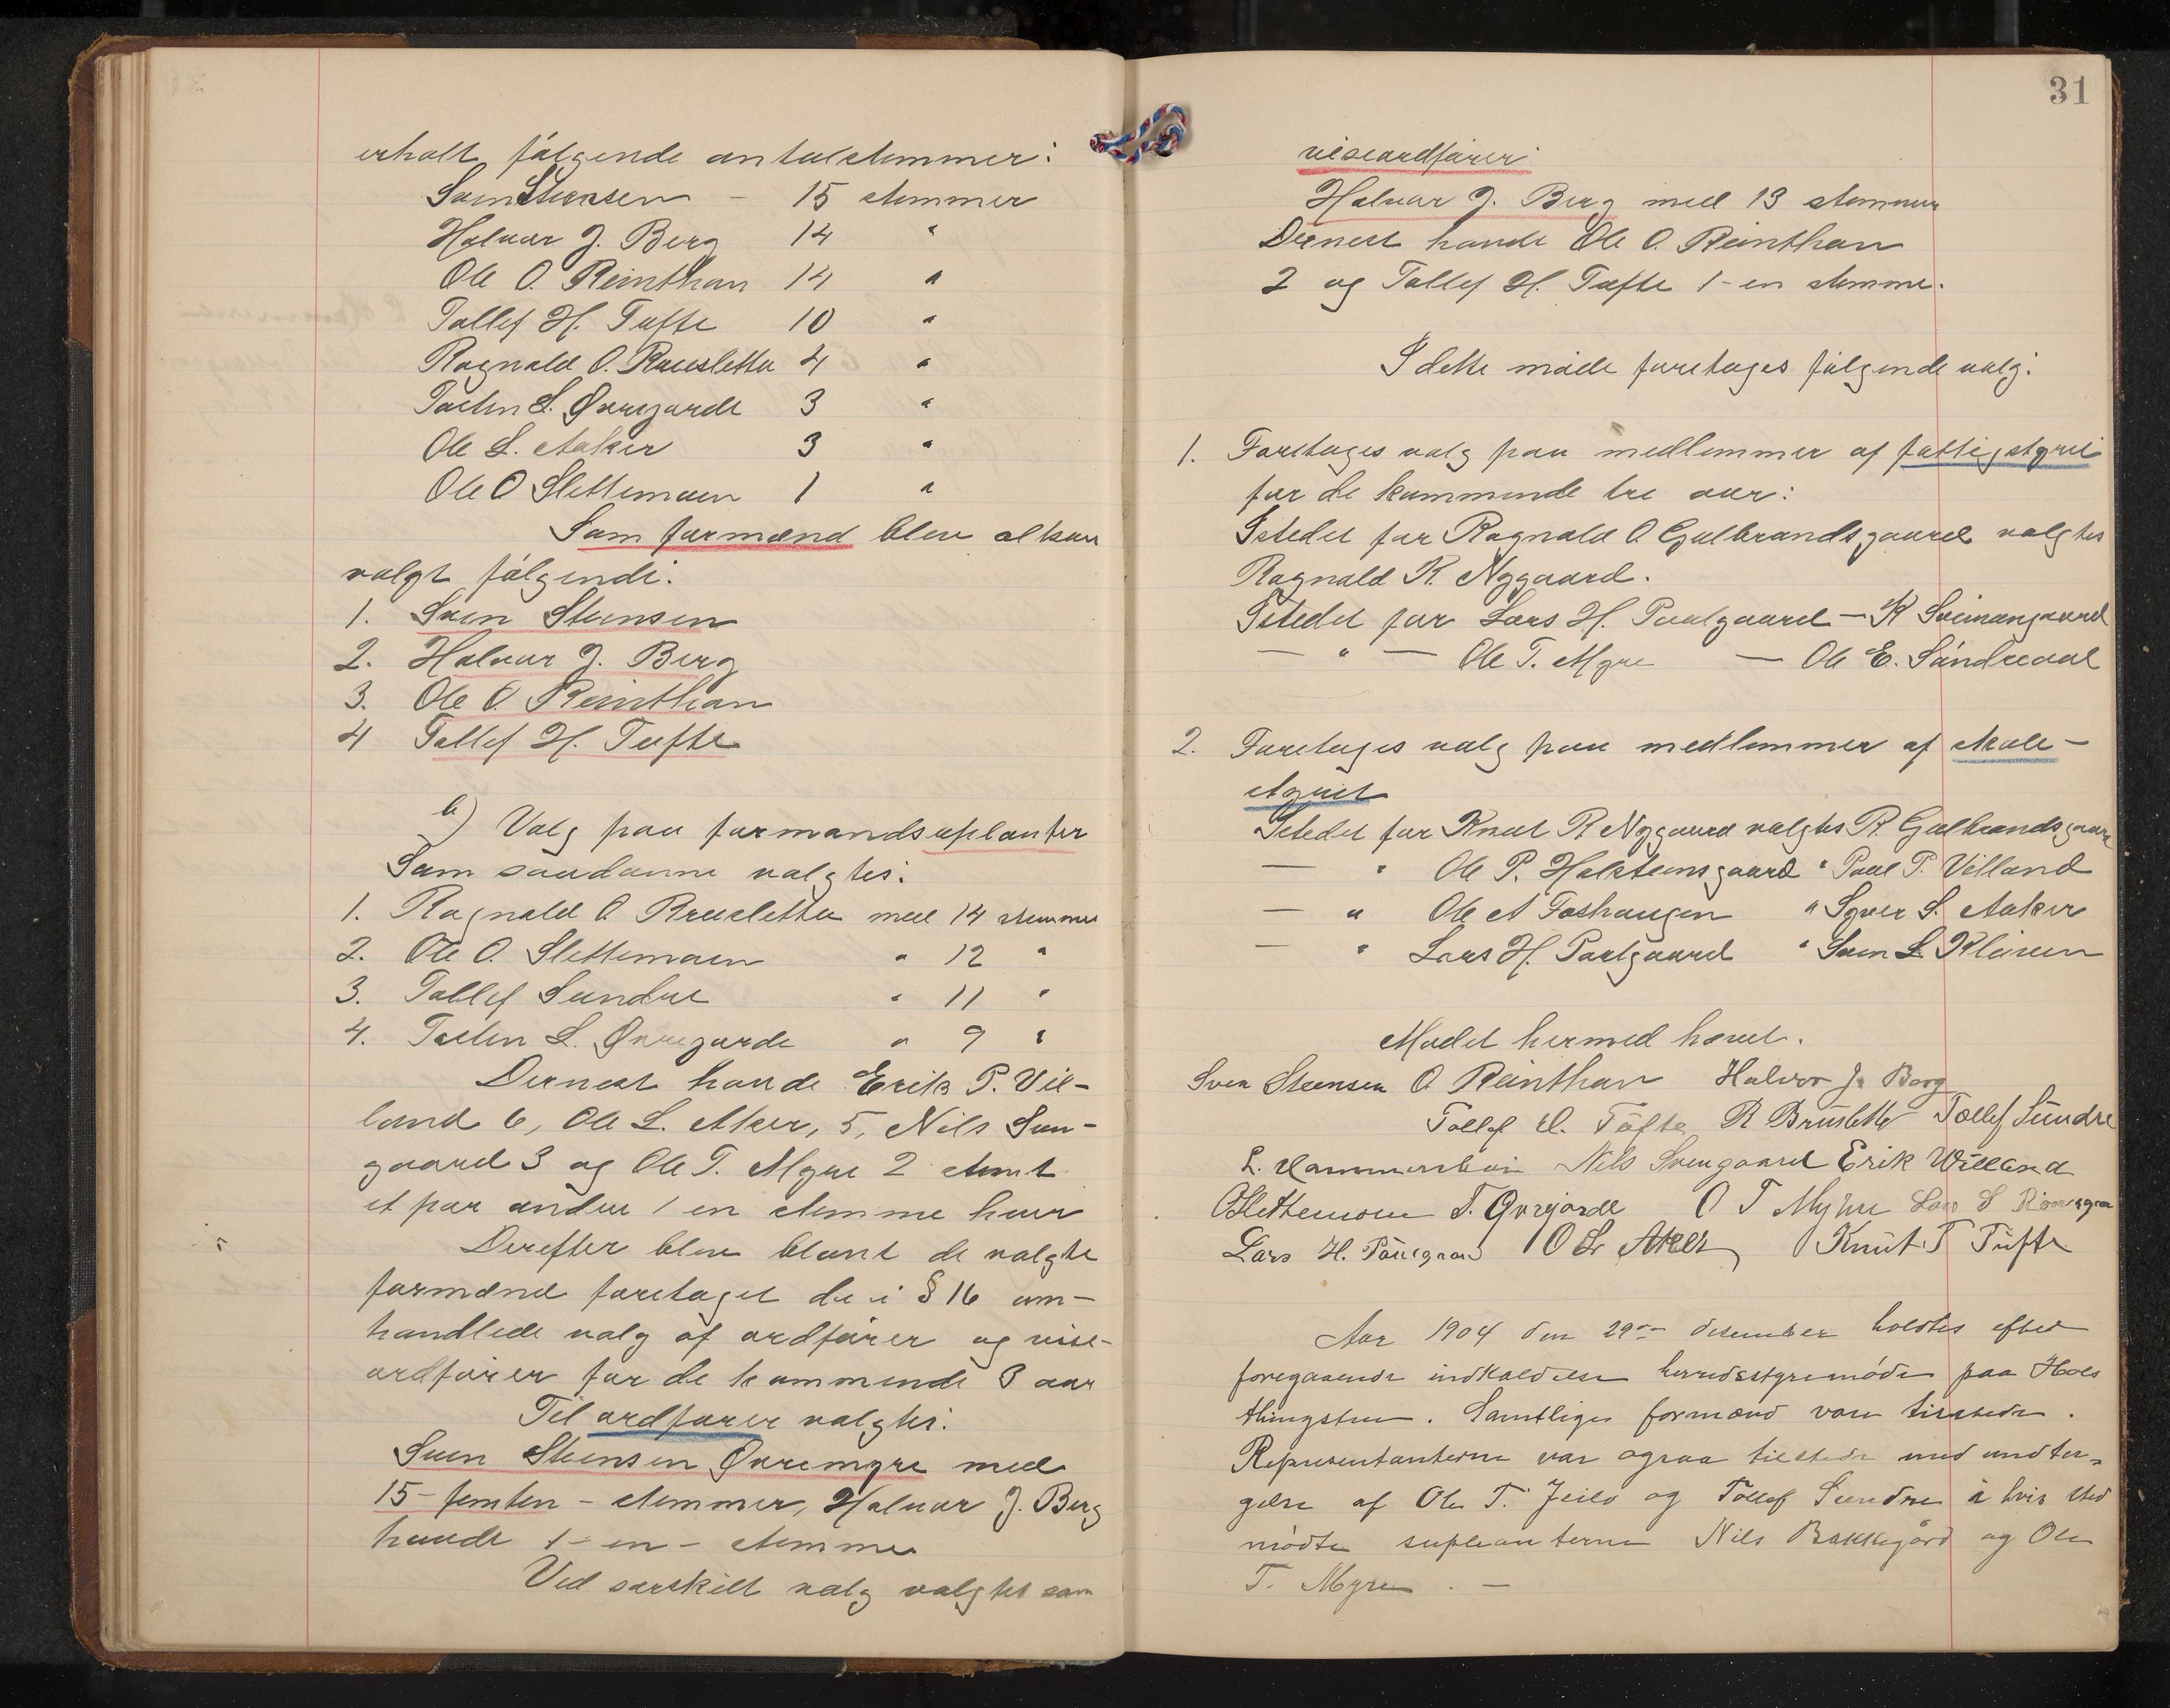 erholt følgende antal stemmer:
Sven Steensen – 15 stemmer
Halvar J. Berg 14 "
Ole O. Reinthon 14 "
Tollef H. Tufte 10 "
Ragnald O. Bruslette 4 "
Torsten L. Øvregarde 3 "
Ole L. Aaker 3 "
Ole O Slettemoen 1 "
Som formænd blev altsaa
valgt følgende:
1. Sven Steensen
2. Halvar J. Berg
3. Ole O. Reinthon
4 Tollef H. Tufte
b) Valg paa formandsuplanter
Som saadanne valgtes:
1. Ragnald O Bruslette med 14 stemmer
2. Ole O. Slettemoen " 12 "
3. Tollef Sundre " 11 "
4. Torsten L. Øvregarde " 9 "
Dernest havde Erik P. Vil-
land 6, Ole L. Aker, 5, Nils Svn-
gaard 3 og Ole T. Myre 2 samt
et par andre 1 en stemme hver
Derefter blev blant de valgte
formænd foretaget de i § 16 om-
handlede valg af ordfører og vise-
ordfører for de kommende 3 aar
Til ordfører valgtes:
Sven Steensen Øvremyre med
15 – femten – stemmer, Halvar J. Berg
havde 1 – en – stemme
Ved særskilt valg valgtes som
31
viseordfører
Halvar J. Berg med 13 stemmer
Dernest havde Ole O. Reinthon
2 og Tollef H. Tufte 1 – en stemme.
I dette møde foretages følgende valg:
1. Foretages valg paa medlemmer af fattigstyret
for de kommende tre aar:
Istedet for Ragnald O Gulbrandsgaard valgtes
Ragnald K. Nygaard.
Istedet for Lars H. Paalgaard – K Sveinungaard
— " — Ole T. Myre — Ole E. Søndreaal
2. Foretages valg paa medlemmer af skole-
styret
Istedet for Knut R Nygaard valgtes R. Gulbrandsgaard
— " Ole P. Halsteinsgaard " Paal P. Villand
— " Ole A Foshaugen " Syver S. Aaker
— " Lars H. Paalgaard " Sven L Kleiven
Mødet hermed hævet.
Sven Steensen O Reinthon Halvor J. Berg
Tollef H. Tufte R Bruslette Tollef Sundre
L. Hammersbøen Nils Svengaard Erik Willand
OSlettemoen T. Øvrejorde O T Myhre Lars S
Lars H. Paalgaard O L Aker Knut T Tufte
Aar 1904 den 29de desember holdtes efter
foregaaende indkaldelse herredsstyremøde paa Hols
thingstue. Samtlige formænd vare tilstede.
Representanterne var ogsaa tilstede med undta-
gelse af Ole T. Jeilo og Tollef Sundre i hvis sted
mødte supleanterne Nils Bakkegård og Ole
T. Myre. –